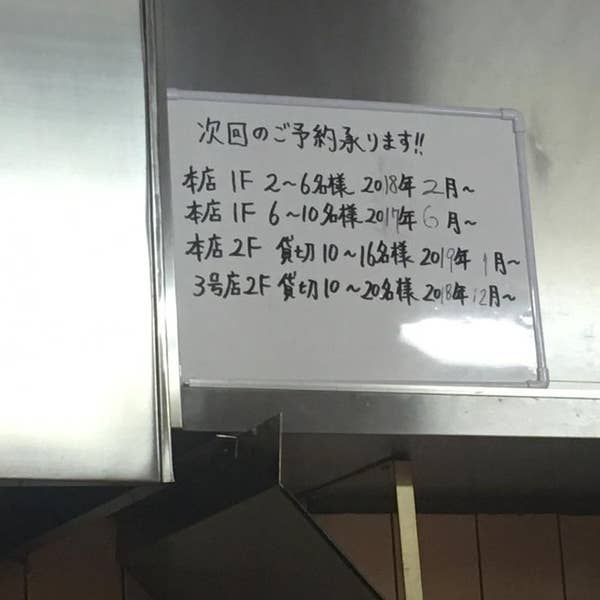 次回のご予約承ります!!
本店 1F 2～6名様 2018年 2月～
本店 1F 6～10名様 2017年 6月～
本店 2F 貸切 10～16名様 2019年 1月～
3号店 2F 貸切 10～20名様 2018年 12月～